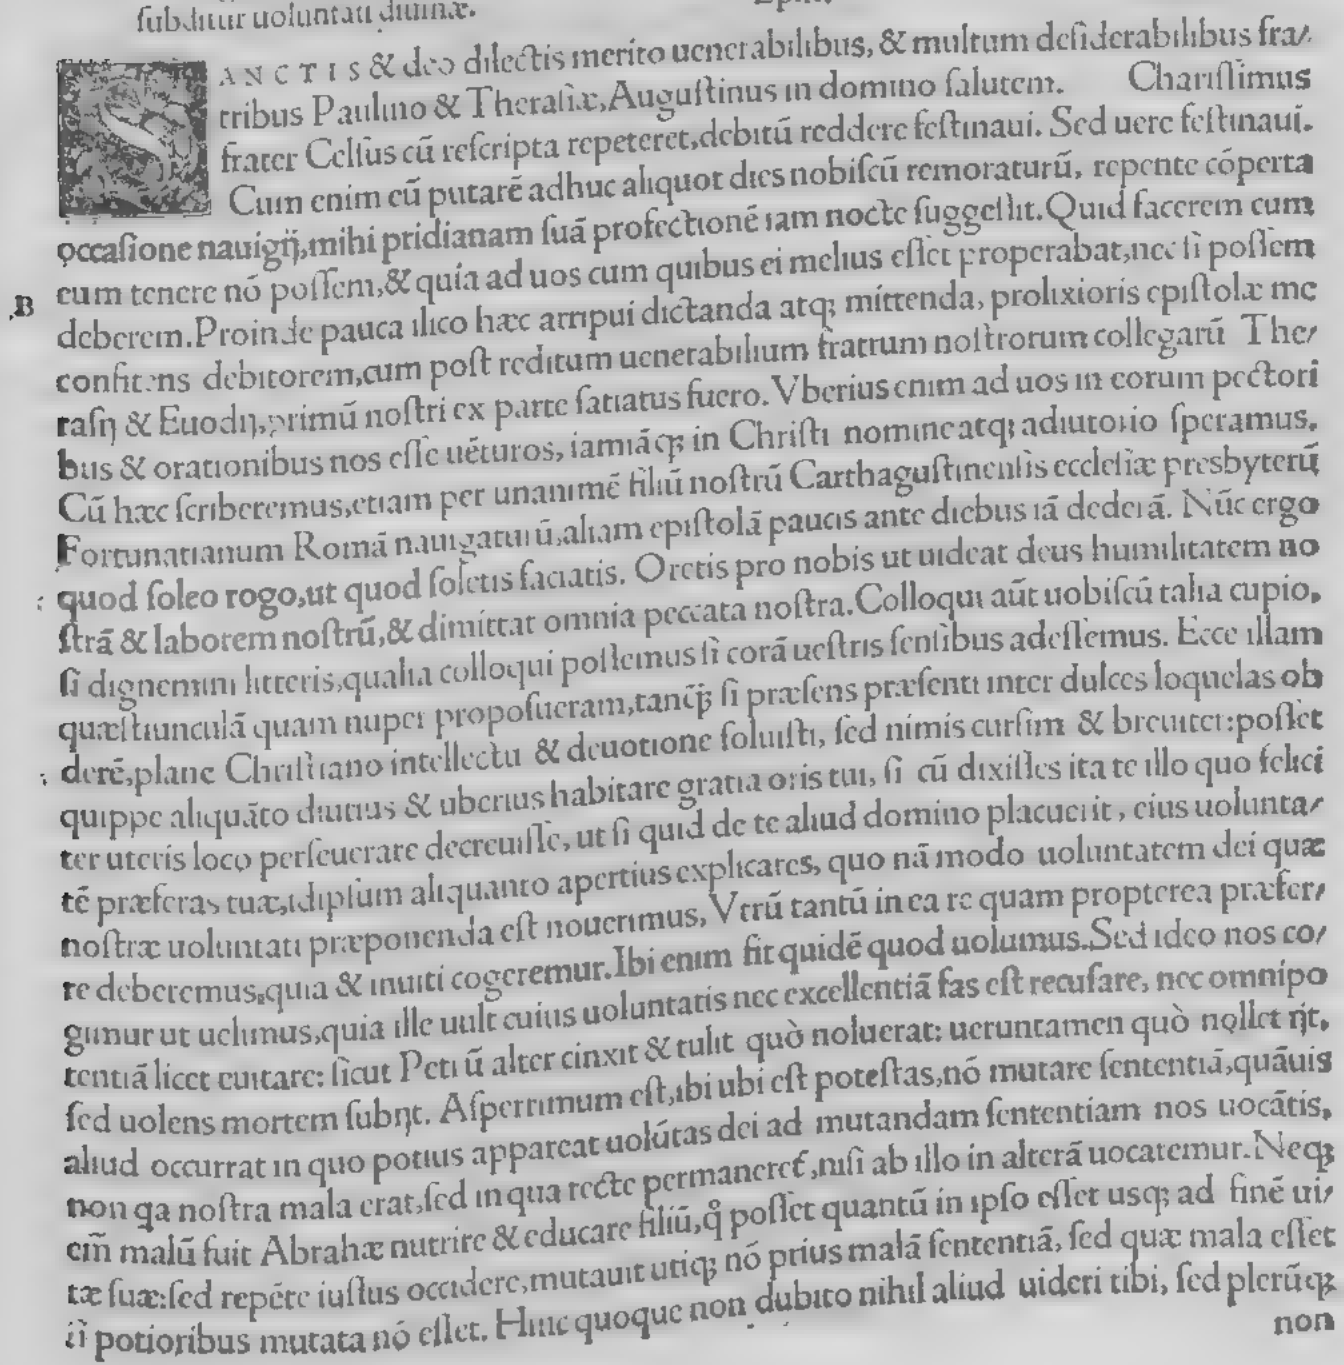 subditur uoluntati diuinæ.
SANCTIS & deo dilectis merito uenerabilibus, & multum desiderabilibus fra/
tribus Paulino & Therasiæ, Augustinus in domino salutem. Charissimus
frater Celsus cū rescripta repeteret, debitū reddere festinaui. Sed uere festinaui.
Cum enim eū putarē adhuc aliquot dies nobiscū remoraturū, repente cōperta
occasione nauigij, mihi pridianam suā profectionē iam nocte suggessit. Quid facerem cum
eum tenere nō possem, & quia ad uos cum quibus ei melius esset properabat, nec si possem
B
deberem. Proinde pauca ilico hæc arripui dictanda atq; mittenda, prolixioris epistolæ me
confitens debitorem, cum post reditum uenerabilium fratrum nostrorum collegarū The/
rasij & Euodij, primū nostri ex parte satiatus fuero. Vberius enim ad uos in eorum pectori
bus & orationibus nos esse uēturos, iamiāq; in Christi nomine atq; adiutorio speramus.
Cū hæc scriberemus, etiam per unanimē filiū nostrū Carthagustinensis ecclesiæ presbyterū
Fortunatianum Romā nauigaturū, aliam epistolā paucis ante diebus iā dederā. Nūc ergo
quod soleo rogo, ut quod soletis faciatis. Oretis pro nobis ut uideat deus humilitatem no
strā & laborem nostrū, & dimittat omnia peccata nostra. Colloqui aūt uobiscū talia cupio,
si dignemini litteris, qualia colloqui possemus si corā uestris sensibus adessemus. Ecce illam
quæstiunculā quam nuper proposueram, tanq̄; si præsens præsenti inter dulces loquelas ob
derē, plane Christiano intellectu & deuotione soluisti, sed nimis cursim & breuiter: posset
quippe aliquāto diutius & uberius habitare gratia oris tui, si cū dixisses ita te illo quo felici
ter uteris loco perseuerare decreuisse, ut si quid de te aliud domino placuerit, eius uolunta/
tē præferas tuæ, idipsum aliquanto apertius explicares, quo nā modo uoluntatem dei quæ
nostræ uoluntati præponenda est nouerimus, Vtrū tantū in ea re quam propterea præfer/
re deberemus, quia & inuiti cogeremur. Ibi enim fit quidē quod uolumus. Sed ideo nos co/
gimur ut uelimus, quia ille uult cuius uoluntatis nec excellentiā fas est recusare, nec omnipo
tentiā licet euitare: sicut Petrū alter cinxit & tulit quò noluerat: ueruntamen quò nollet ijt,
sed uolens mortem subijt. Asperrimum est, ibi ubi est potestas, nō mutare sententiā, quāuis
aliud occurrat in quo potius appareat uolūtas dei ad mutandam sententiam nos uocātis,
non qa nostra mala erat, sed in qua recte permaneret, nisi ab illo in alterā uocaremur. Neq;
em̄ malū fuit Abrahæ nutrire & educare filiū, q̊ posset quantū in ipso esset usq; ad finē ui/
tæ suæ: sed repēte iussus occidere, mutauit utiq; nō prius malā sententiā, sed quæ mala esset
si potioribus mutata nō esset. Hinc quoque non dubito nihil aliud uideri tibi, sed plerūq;
non